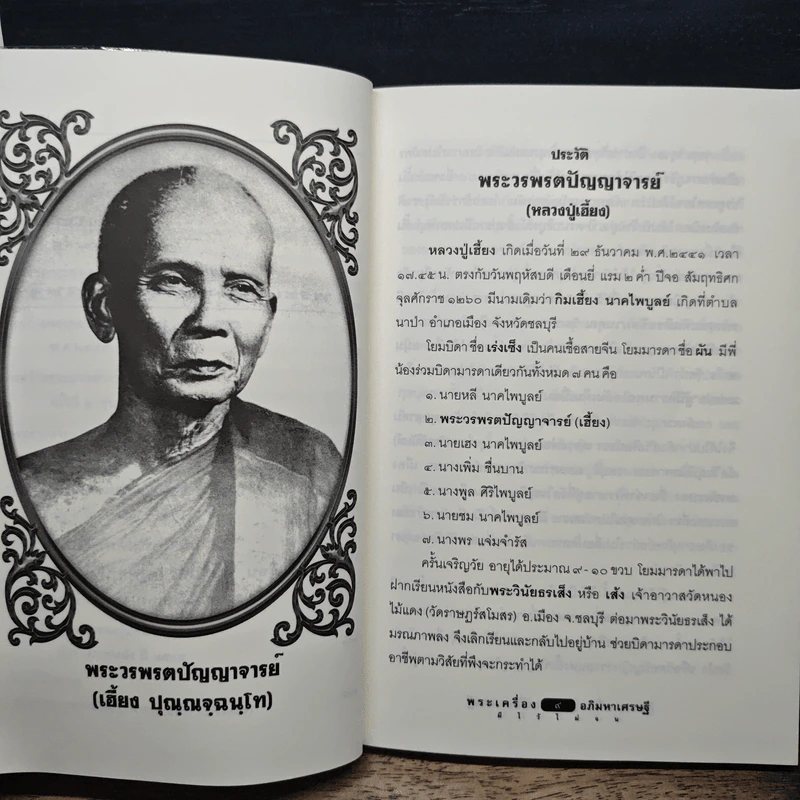 พระวรพรตปัญญาจารย์
(เฮี้ยง ปุณฺณจฺฉนฺโท)
ประวัติ
พระวรพรตปัญญาจารย์
(หลวงปู่เฮี้ยง)
หลวงปู่เฮี้ยง เกิดเมื่อวันที่ ๒๙ ธันวาคม พ.ศ.๒๔๔๑ เวลา
๑๗.๔๕ น. ตรงกับวันพฤหัสบดี เดือนยี่ แรม ๒ ค่ำ ปีจอ สัมฤทธิศก
จุลศักราช ๑๒๖๐ มีนามเดิมว่า กิมเฮี้ยง นาคไพบูลย์ เกิดที่ตำบล
นาป่า อำเภอเมือง จังหวัดชลบุรี
โยมบิดาชื่อ เร่งเซ็ง เป็นคนเชื้อสายจีน โยมมารดาชื่อ ผัน มีพี่
น้องร่วมบิดามารดาเดียวกันทั้งหมด ๗ คน คือ
๑. นายหลี นาคไพบูลย์
๒. พระวรพรตปัญญาจารย์ (เฮี้ยง)
๓. นายเฮง นาคไพบูลย์
๔. นางเพิ่ม ชื่นบาน
๕. นางพูล ศิริไพบูลย์
๖. นายชม นาคไพบูลย์
๗. นางพร แจ่มจำรัส
ครั้นเจริญวัย อายุได้ประมาณ ๙ - ๑๐ ขวบ โยมมารดาได้พาไป
ฝากเรียนหนังสือกับพระวินัยธรเส็ง หรือ เส้ง เจ้าอาวาสวัดหนอง
ไม้แดง (วัดราษฎร์สโมสร) อ.เมือง จ.ชลบุรี ต่อมาพระวินัยธรเส็ง ได้
มรณภาพลง จึงเลิกเรียนและกลับไปอยู่บ้าน ช่วยบิดามารดาประกอบ
อาชีพตามวิสัยที่พึงจะกระทำได้
พระเครื่อง ๙ อภิมหาเศรษฐี
มีไว้ไม่จน